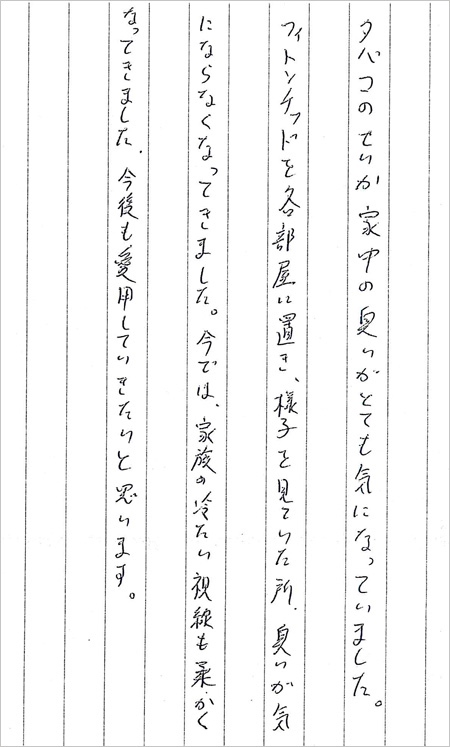 タバコのせいか家中の臭いがとても気になっていました。
フィトンチッドを各部屋に置き、様子を見ていた所、臭いが気
にならなくなってきました。今では、家族の冷たい視線も柔かく
なってきました。今後も愛用していきたいと思います。